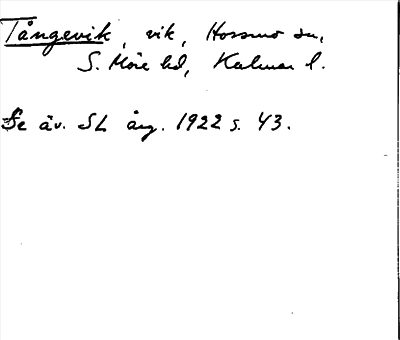 Tångevik, vik, Hossmo sn,
S. Möre hd, Kalmar l.
Se äv. SL årg. 1922 s. 43.